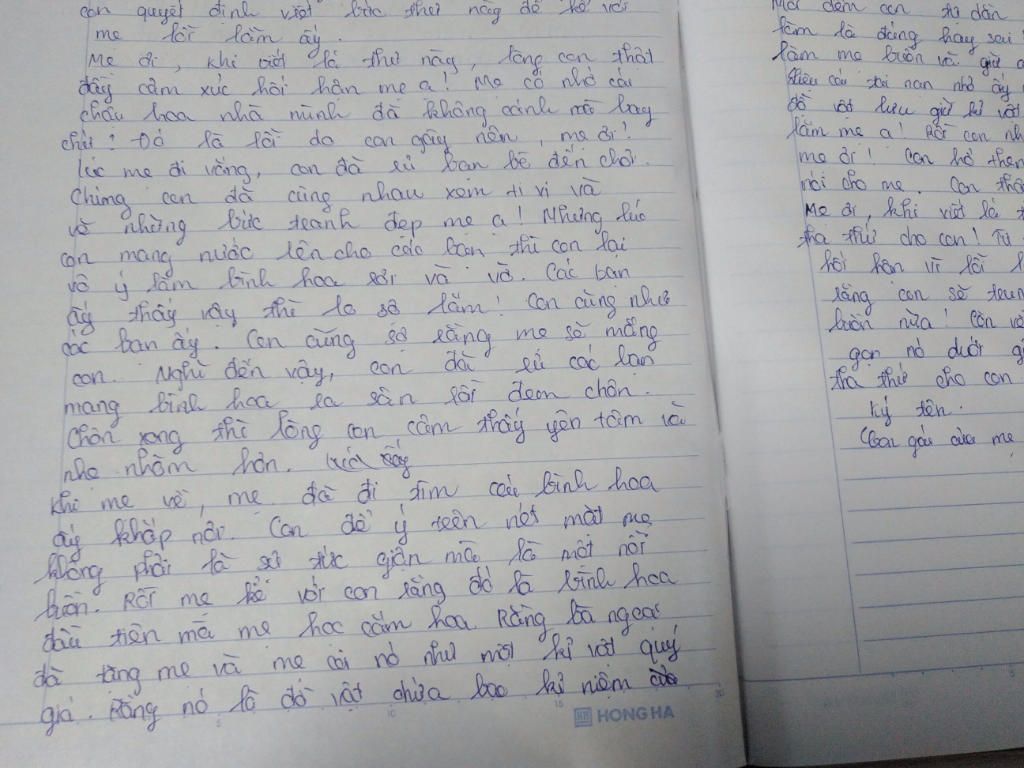 con quyết định viết bức thư này để kể với
mẹ lỗi lầm ấy.
Mẹ ơi, khi viết lá thư này, lòng con thật
đầy cảm xúc hối hận mẹ ạ! Mẹ có nhớ cái
chậu hoa nhà mình đã không cánh mà bay
chứ! Đó là lỗi do con gây nên, mẹ ơi!
Lúc mẹ đi vắng, con đã rủ bạn bè đến chơi.
Chúng con đã cùng nhau xem ti vi và
vẽ những bức tranh đẹp mẹ ạ! Nhưng lúc
con mang nước lên cho các bạn thì con lại
vô ý làm bình hoa rơi và vỡ. Các bạn
ấy thấy vậy thì lo sợ lắm! Con cũng như
các bạn ấy. Con cũng sợ rằng mẹ sẽ mắng
con. Nghĩ đến vậy, con đã rủ các bạn
mang bình hoa ra sân rồi đem chôn.
Chôn xong thì lòng con cảm thấy yên tâm và
nhẹ nhõm hơn.
Khi mẹ về, mẹ đã đi tìm cái bình hoa
ấy khắp nơi. Con để ý trên nét mặt mẹ
không phải là sự tức giận mà là một nỗi
buồn. Rồi mẹ kể với con rằng đó là bình hoa
đầu tiên mà mẹ học cắm hoa. Rằng bà ngoại
đã tặng mẹ và mẹ coi nó như một kỉ vật quý
giá. Rằng nó là đồ vật chứa bao kỉ niệm
HONG HA
Mỗi đêm con tự dằn
lầm là đúng hay sai
làm mẹ buồn và giữ
nhỏ ấy
đồ vật lưu giữ kỉ vật
lắm mẹ ạ! Rồi con
mẹ ơi! Con hổ
nói cho mẹ. Con
Mẹ ơi, khi viết lá
tha thứ cho con! Từ
hối hận vì lỗi
rằng con sẽ
buồn nữa! Còn
gọn nó dưới
tha thứ cho con
Ký tên.
Con gái của mẹ